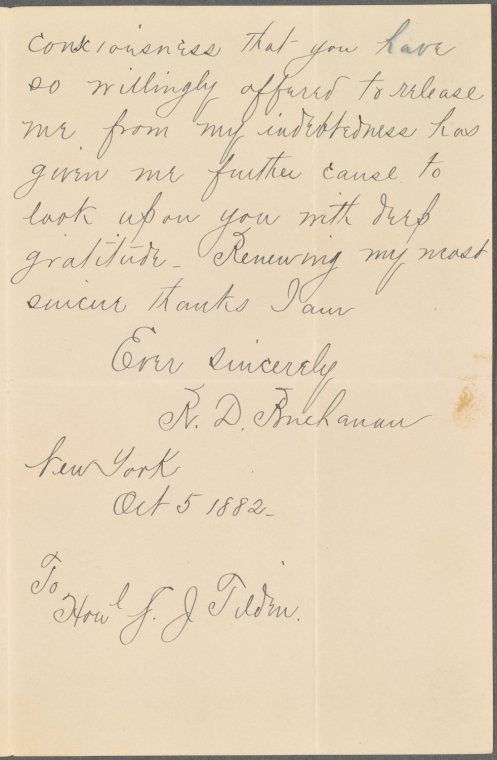 conxiousness that you have
so willingly offered to release
me from my indebtedness has
given me further cause to
look upon you with deep
gratitude - Renewing my most
sincere thanks I am
Ever sincerely
R. D. Buchanan
New York
Oct 5 1882 -
To
Honl S. J. Tilden.